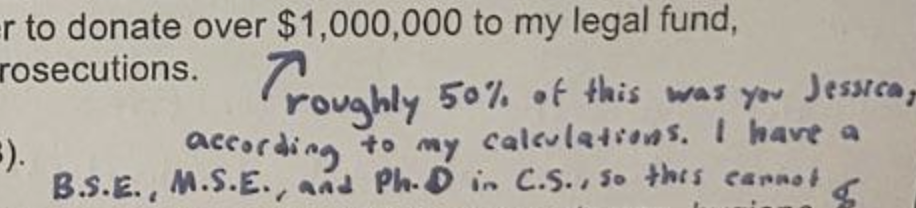 r to donate over $1,000,000 to my legal fund,
rosecutions.
roughly 50% of this was you Jessica,
according to my calculations. I have a
).
B.S.E., M.S.E., and Ph.D in C.S., so this cannot